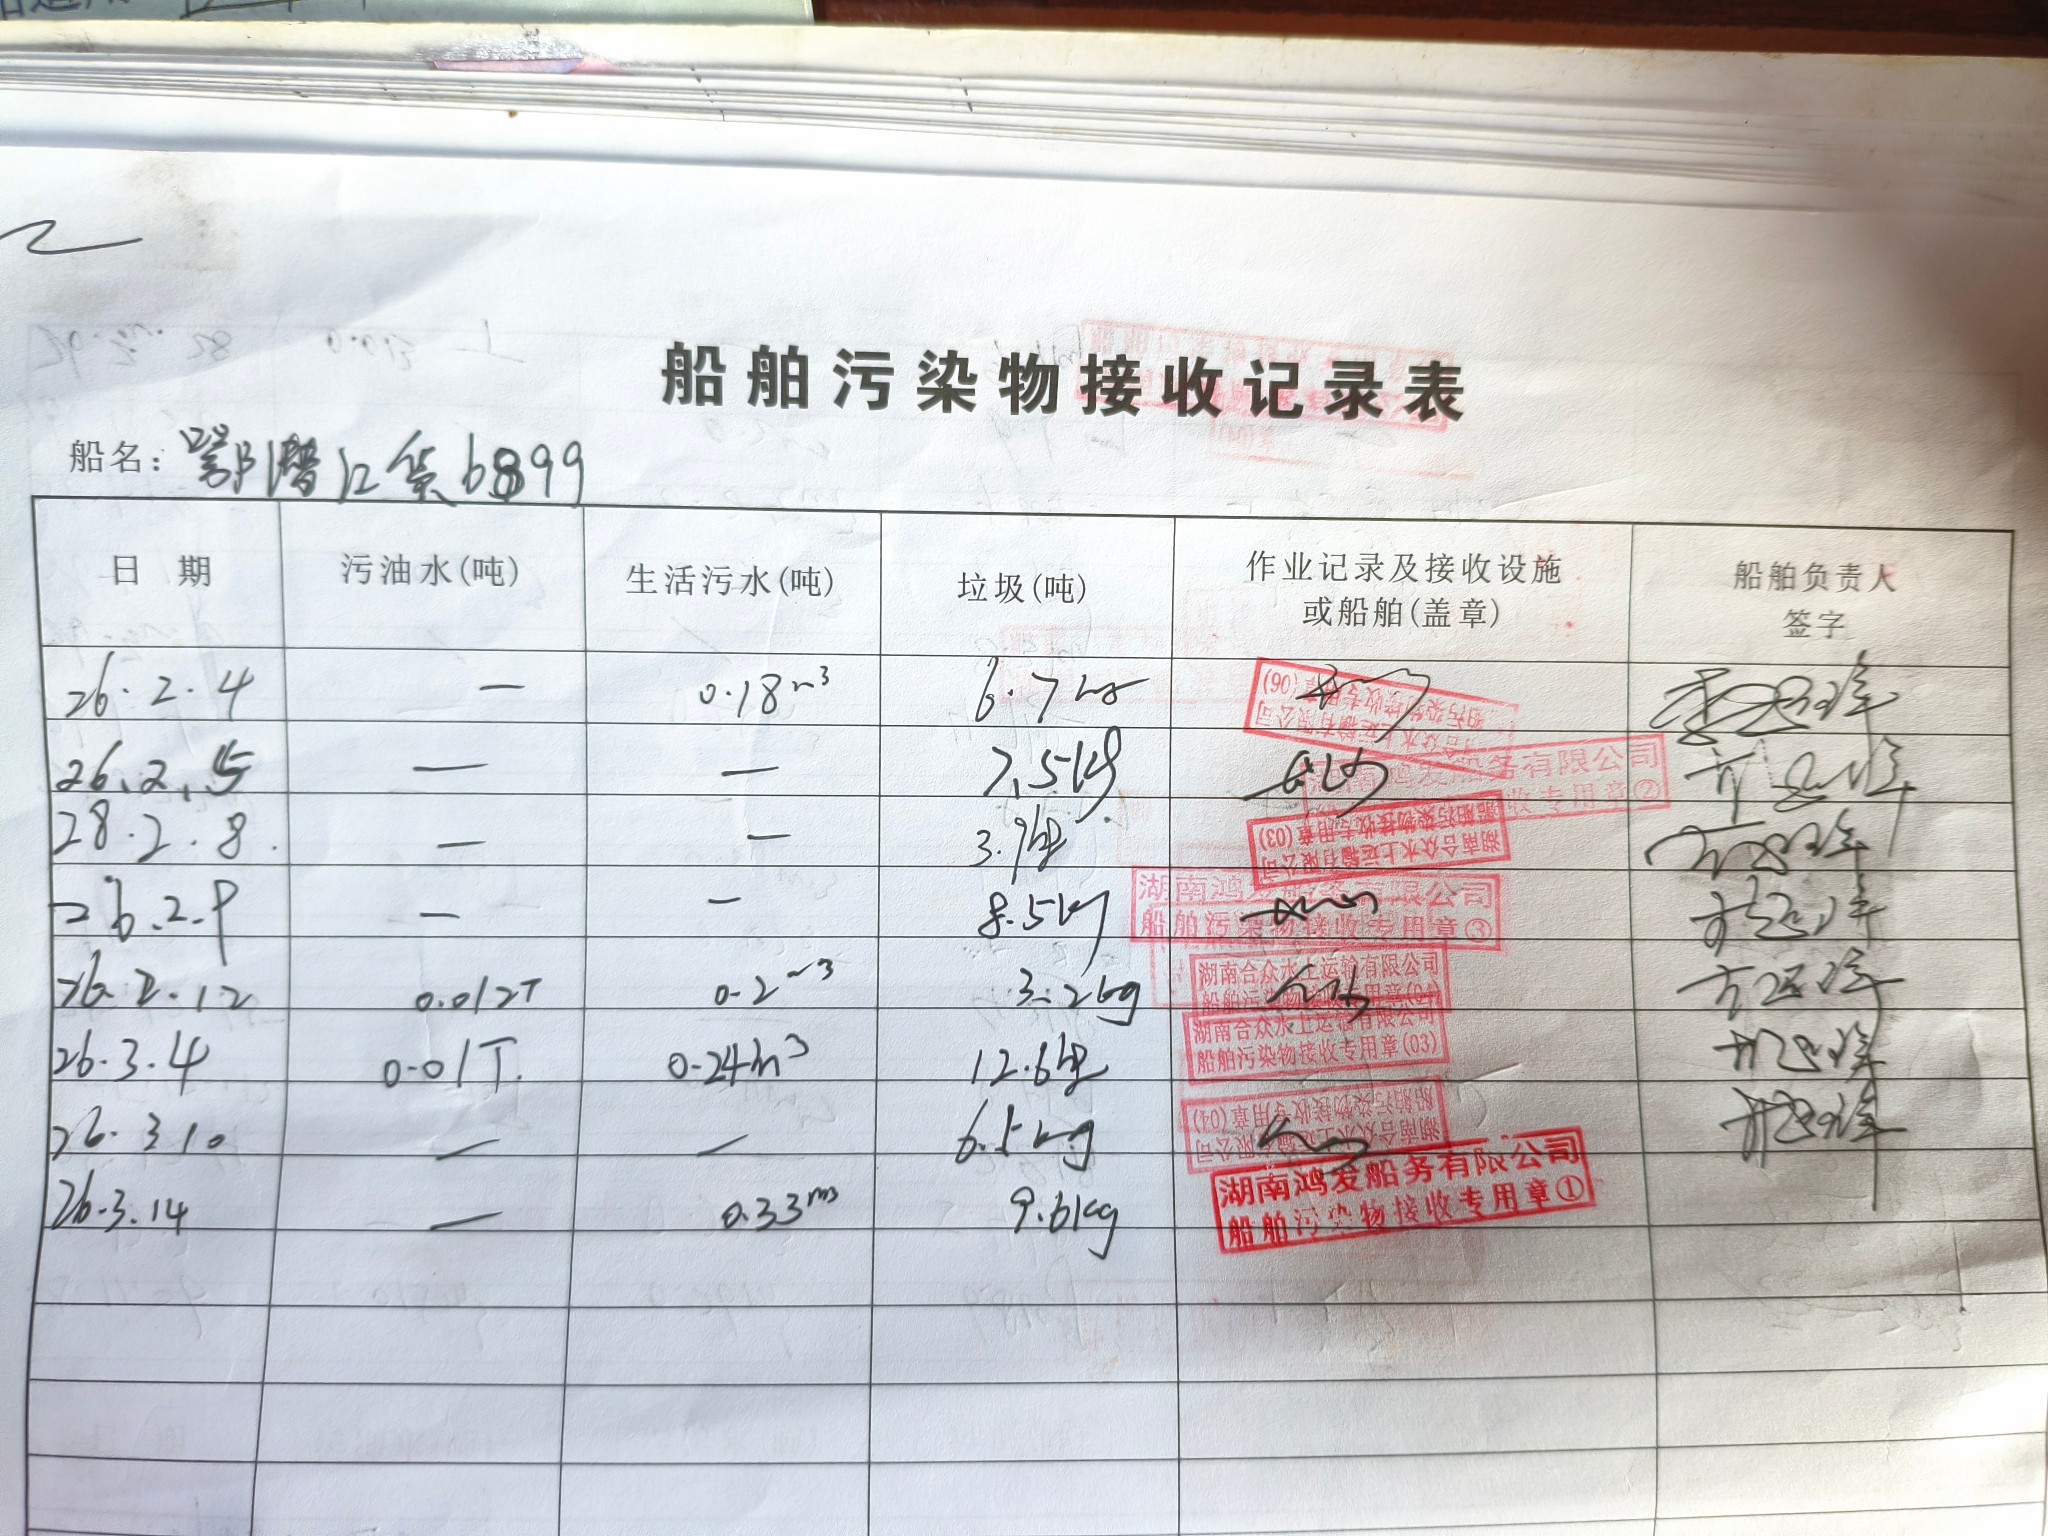 船舶污染物接收记录表
船名：鄂潜江货6899
日 期 污油水(吨) 生活污水(吨) 垃圾(吨) 作业记录及接收设施或船舶(盖章) 船舶负责人签字
26.2.4 — 0.18m³ 6.7kg
26.2.5 — — 7.5kg
28.2.8. — — 3.9kg
26.2.9 — — 8.5kg
26.2.12 0.012T 0.2m³ 3.2kg
26.3.4 0.01T. 0.24m³ 12.6kg
26.3.10 — — 6.5kg
26.3.14 — 0.33m³ 9.6kg
湖南合众水上运输有限公司
船舶污染物接收专用章(06)
湖南鸿发船务有限公司
收专用章②
湖南合众水上运输有限公司
船舶污染物接收专用章(03)
湖南鸿发船务有限公司
船舶污染物接收专用章③
湖南合众水上运输有限公司
船舶污染物接收专用章(04)
湖南合众水上运输有限公司
船舶污染物接收专用章(03)
湖南合众水上运输有限公司
船舶污染物接收专用章(04)
湖南鸿发船务有限公司
船舶污染物接收专用章①